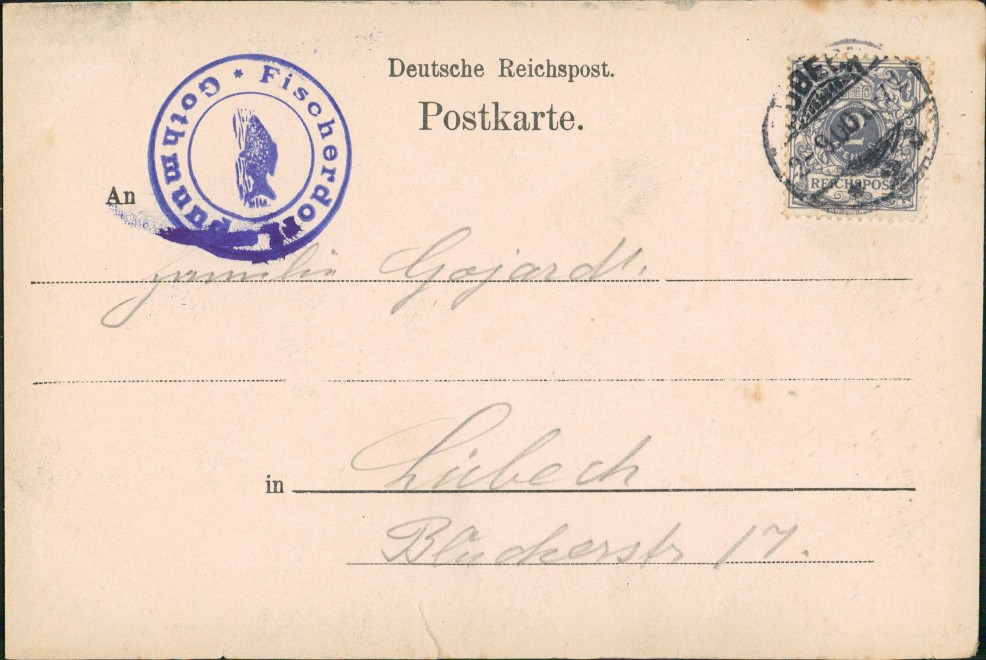 Deutsche Reichspost.
Postkarte.
* Fischerdorf Gothmund
REICHSPOST
An
Familie Gojardt.
in Lübeck
Blücherstr 17.